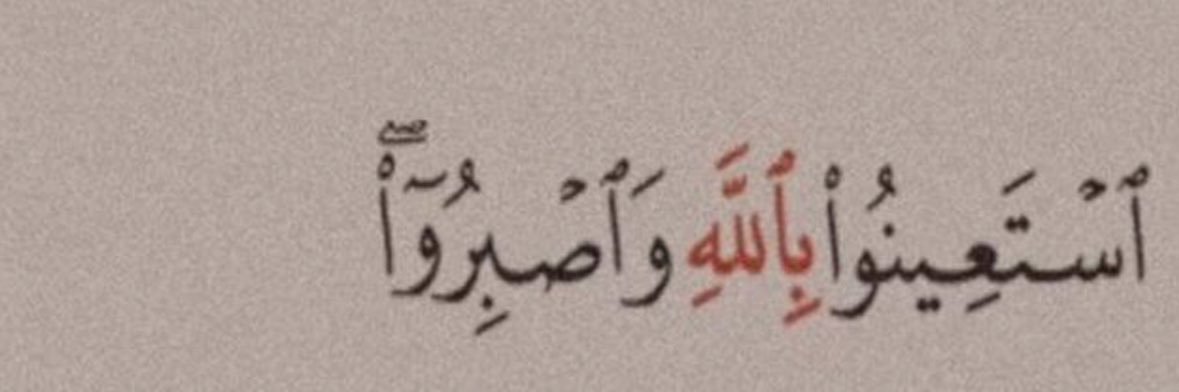 ٱسْتَعِينُوا۟ بِٱللَّهِ وَٱصْبِرُوٓا۟ ۖ